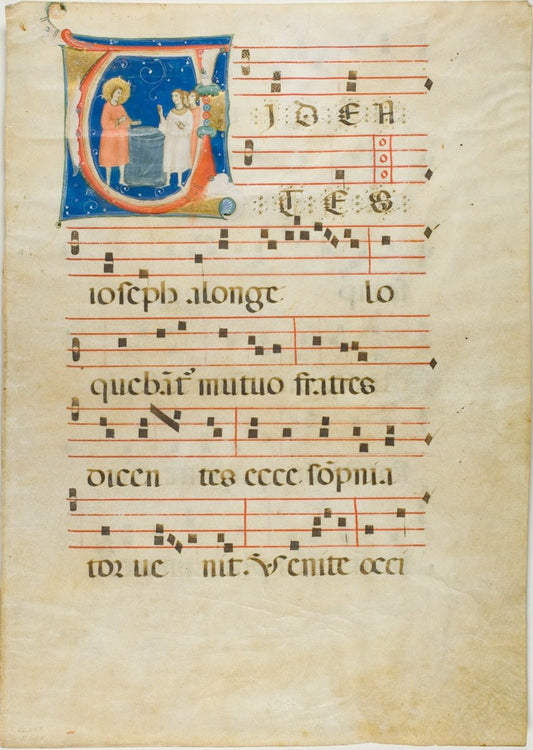 VIDEN
TES
ioseph alonge lo
quebāt᷑ mutuo fratres
dicen tes ecce sōpnia
tor ue nit. ℣ enite occi